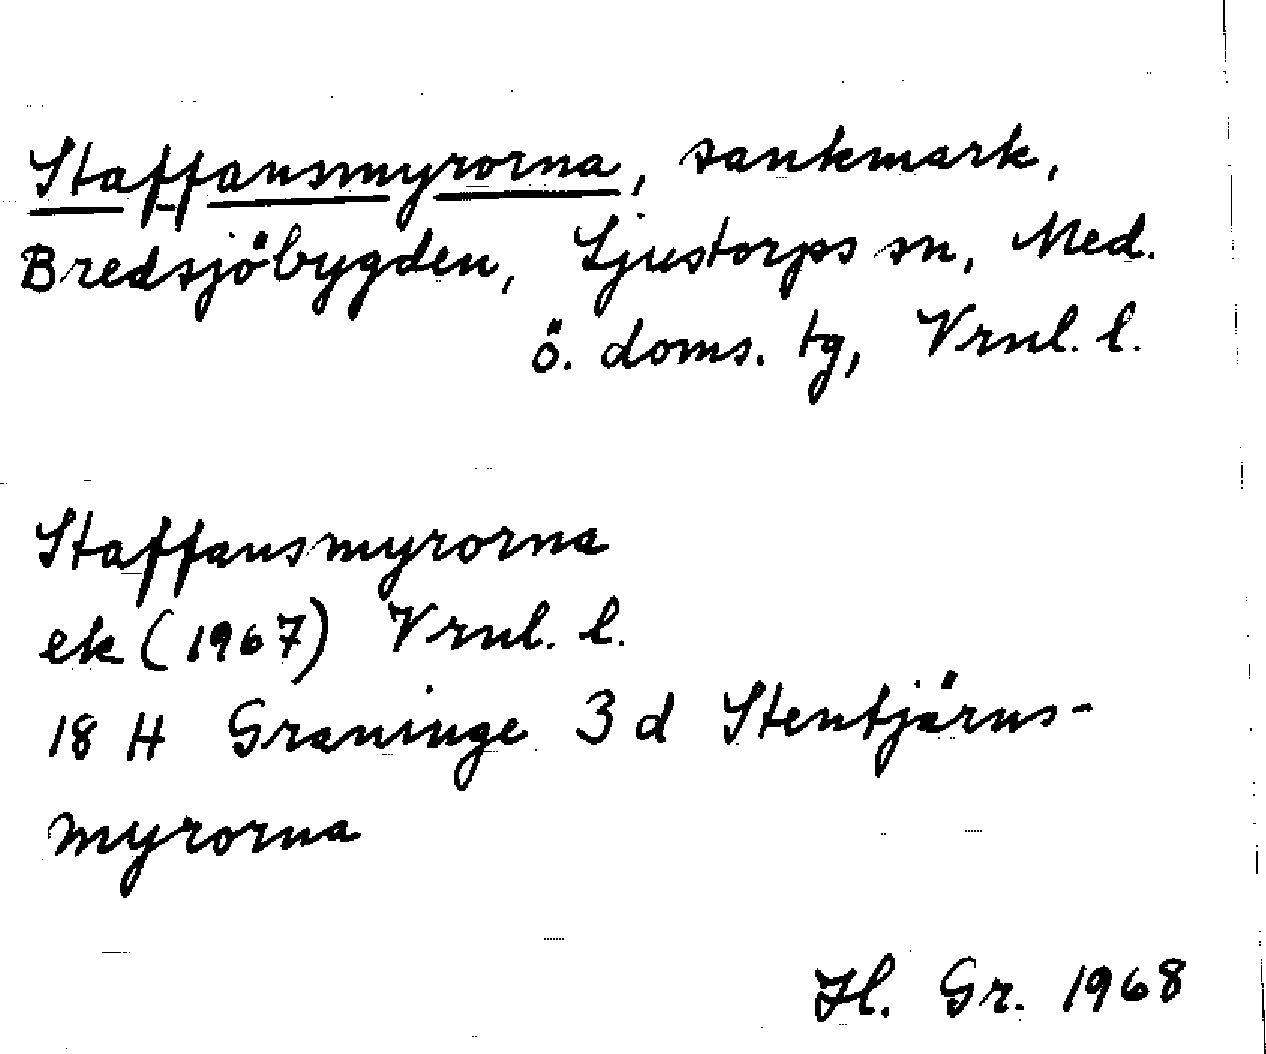 Staffansmyrorna, sankmark,
Bredsjöbygden, Ljustorps sn, Med.
ö. doms. tg, Vrnl. l.
Staffansmyrorna
ek (1967) Vrnl. l.
18 H Graninge 3 d Stentjärns-
myrorna
Hl. Gr. 1968